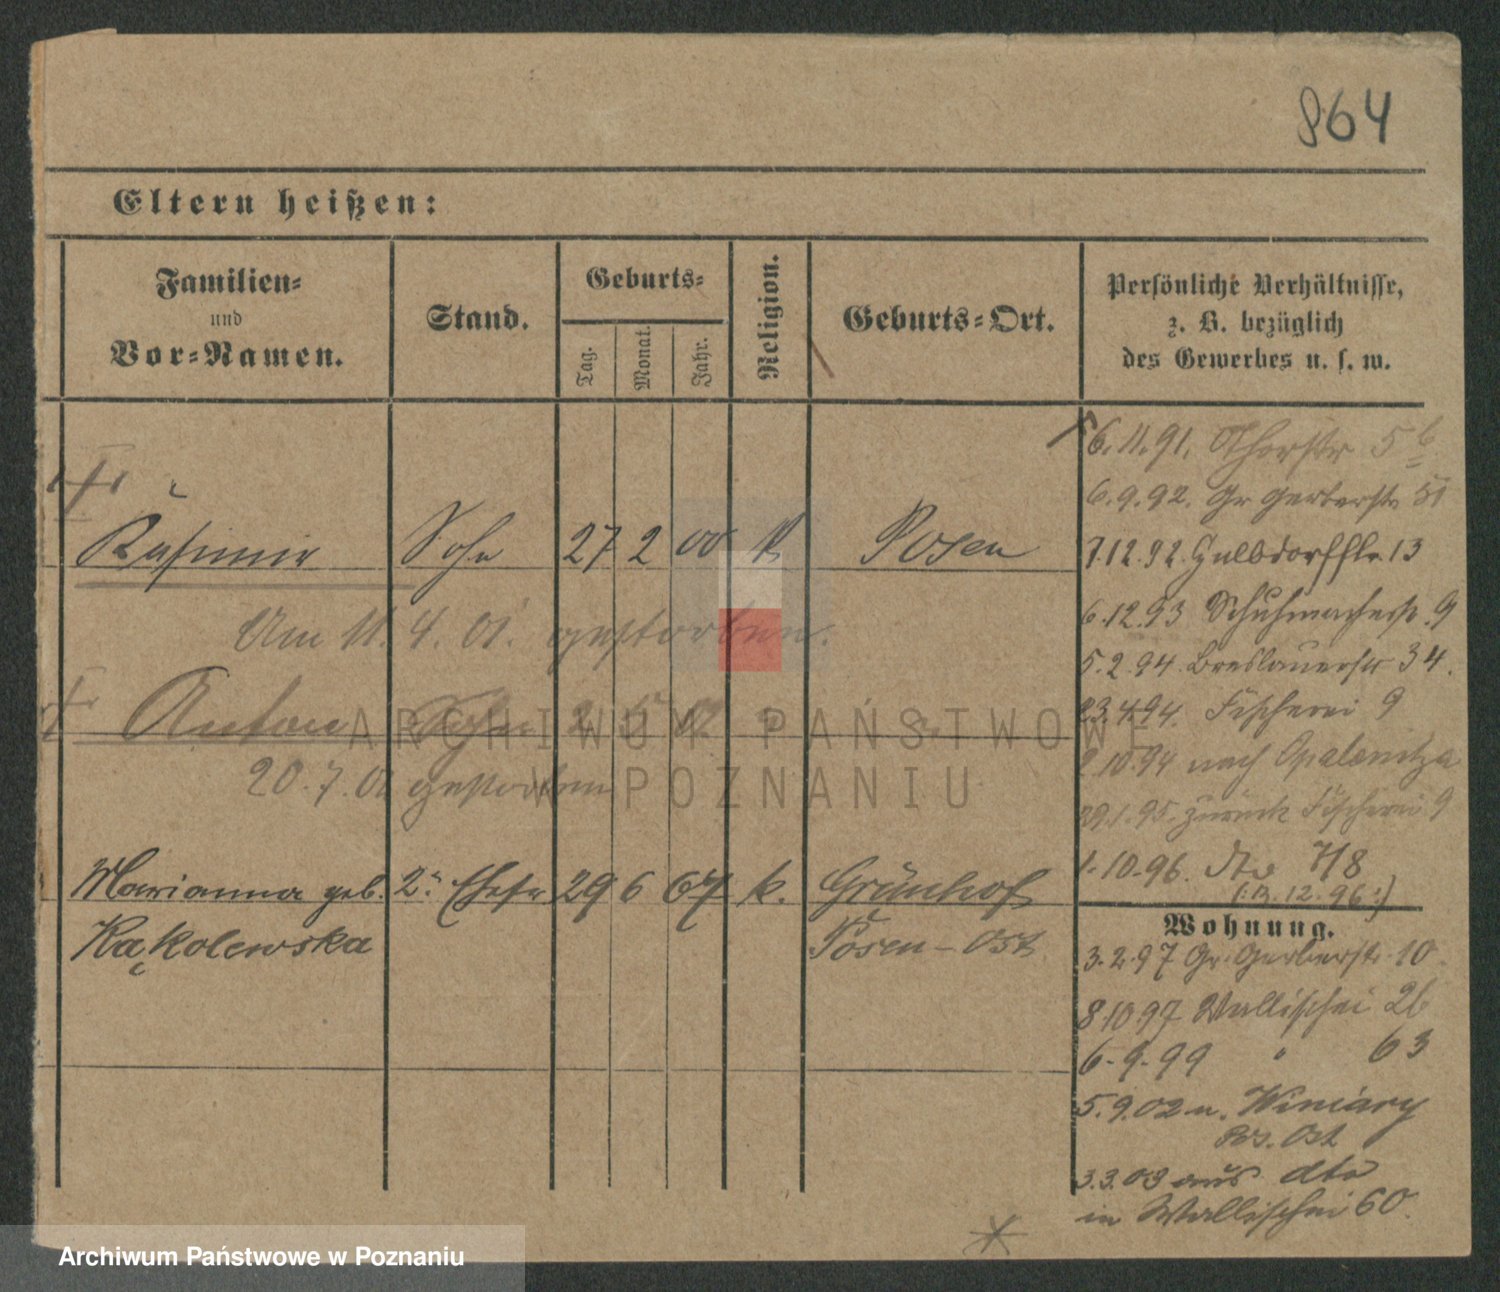 864
Eltern heißen:
Familien-
und
Vor-Namen.
Stand.
Geburts-
Tag.
Monat.
Jahr.
Religion.
Geburts-Ort.
Persönliche Verhältnisse,
z. B. bezüglich
des Gewerbes u. s. w.
Kasimir Sohn 27 2 00 k Posen
Am 11. 4. 01. gestorben.
Anton Sohn 2
20. 7. 01 gestorben
Marianna geb. 2. Ehefr 29 6 67 k. Grünhof
Kąkolewska Posen-Ost
6.11.91. Thorstr 5
6.9.92. Gr Gerberstr 51
7.12.92. 13
6.12.93 Schuhmacherstr. 9
5.2.94. Breslauerstr 34.
23.4.94. Fischerei 9
2.10.94 nach Opalenitza
29.1.95. zurück Fischerei 9
1.10.96. dto 7/8
12.96.
Wohnung.
3.2.97 Gr. Gerberstr. 10.
8.10.97 Wallischei 26
6.9.99 " 63
5.9.02 n. Winiary
Pos. Ost
3.3.03 aus dto
in Wallischei 60.
ARCHIWUM PAŃSTWOWE
W POZNANIU
Archiwum Państwowe w Poznaniu